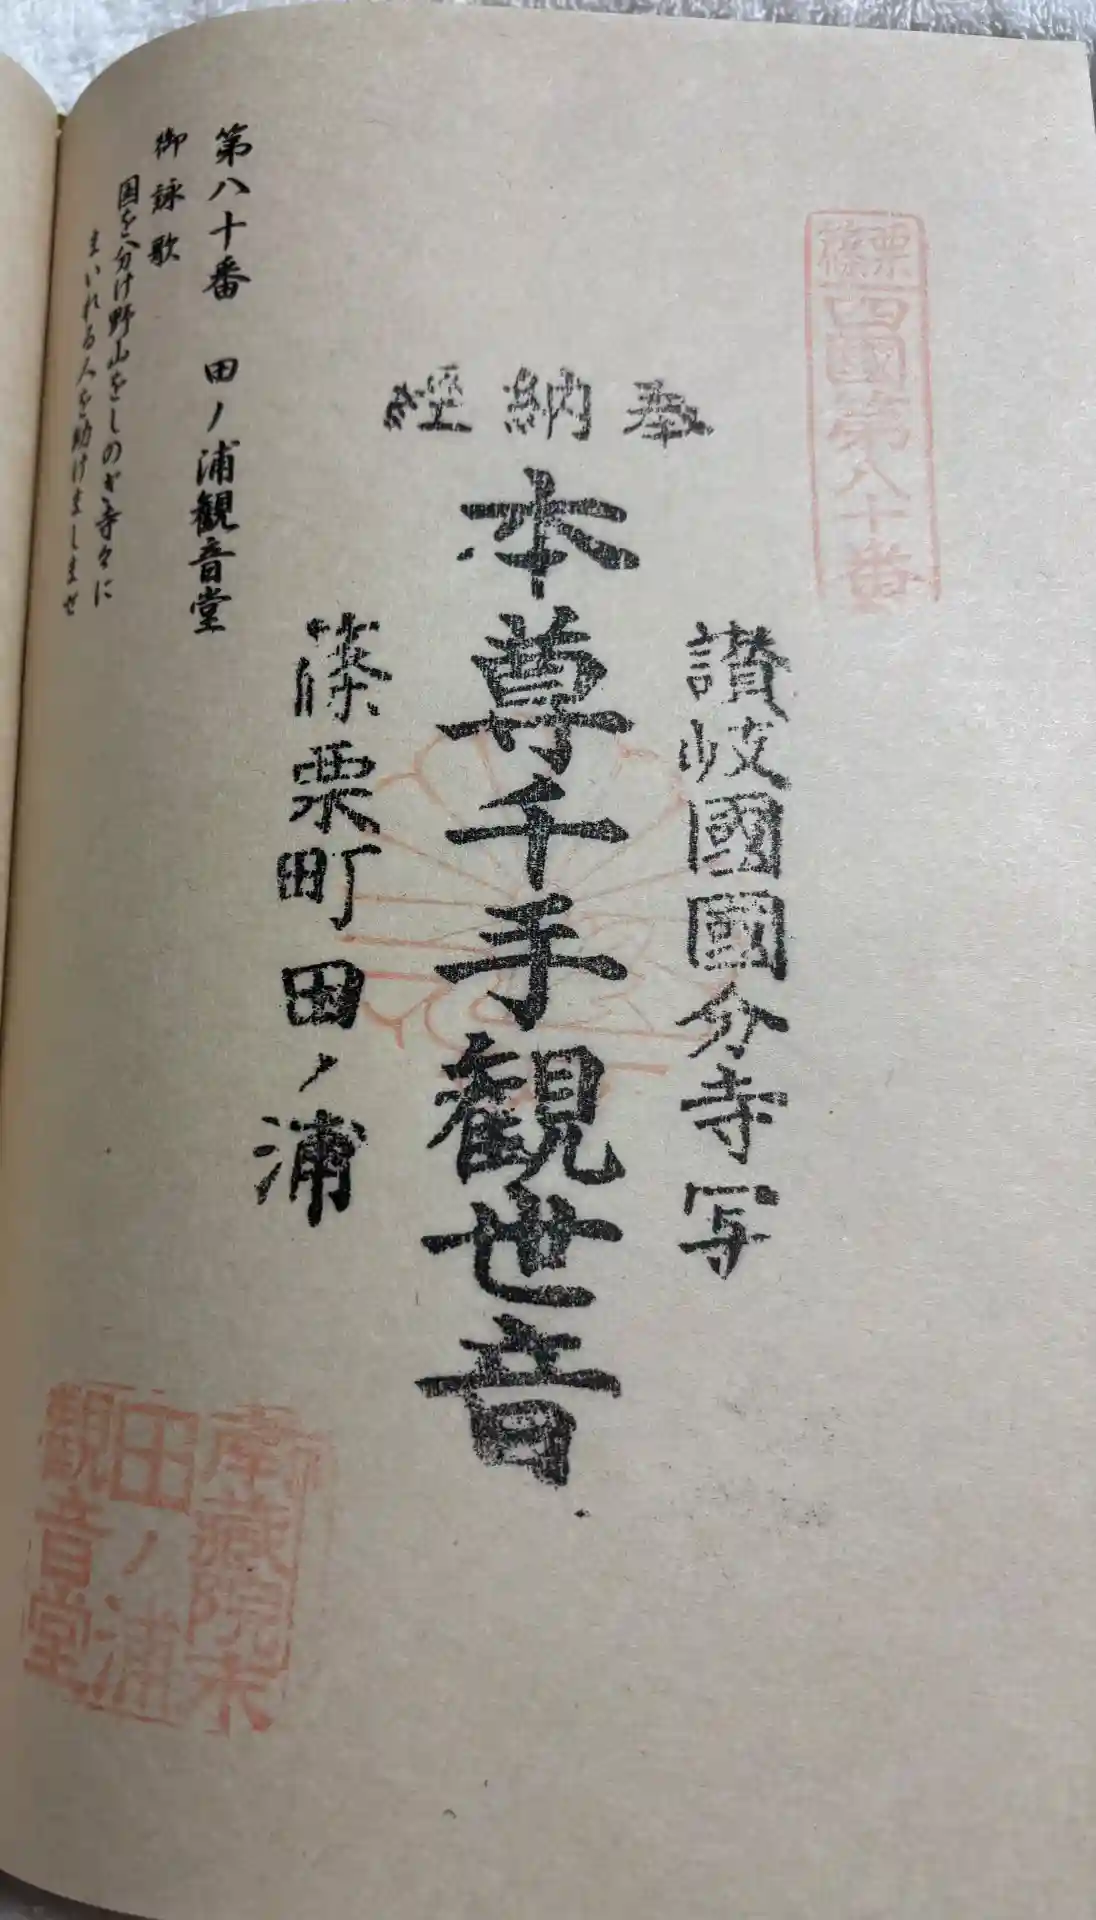 篠栗
四國第八十番
奉納経
讃岐國國分寺写
本尊千手観世音
篠栗町田ノ浦
第八十番 田ノ浦観音堂
御詠歌
国を分け野山をしのぎ寺々に
まいれる人を助けましませ
南蔵院末
田ノ浦
観音堂